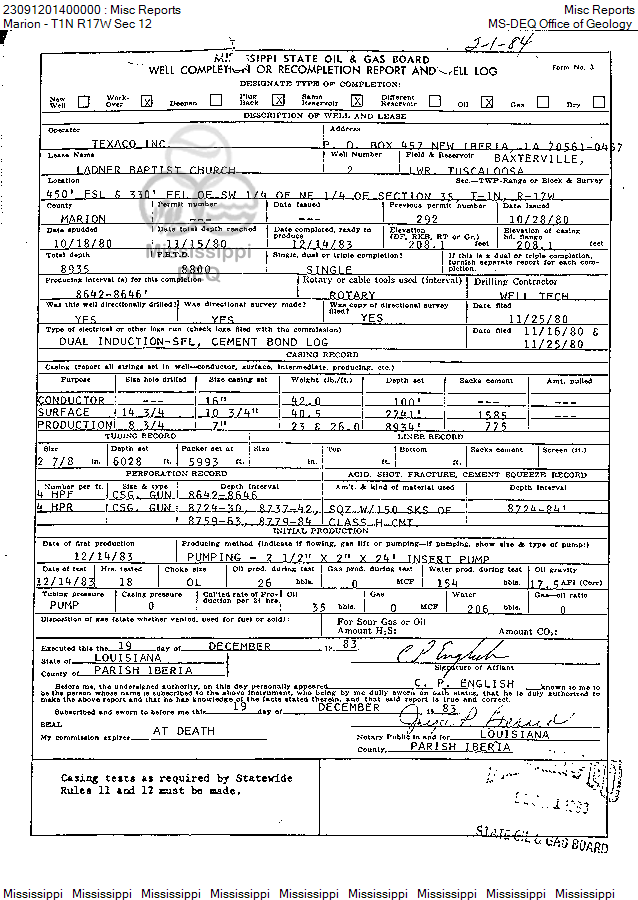 23091201400000 : Misc Reports Misc Reports
Marion - T1N R17W Sec 12 MS-DEQ Office of Geology
2-1-84
MISSISSIPPI STATE OIL & GAS BOARD
WELL COMPLETION OR RECOMPLETION REPORT AND WELL LOG Form No. 3
DESIGNATE TYPE OF COMPLETION:
New Well Work-Over X Deepen Plug Back X Same Reservoir X Different Reservoir Oil X Gas Dry
DESCRIPTION OF WELL AND LEASE
Operator Address
TEXACO INC. P. O. BOX 457 NEW IBERIA, LA 70561-0457
Lease Name Well Number Field & Reservoir BAXTERVILLE,
LADNER BAPTIST CHURCH 2 LWR. TUSCALOOSA
Location Sec.-TWP-Range or Block & Survey
450' FSL & 330' FEL OF SW 1/4 OF NE 1/4 OF SECTION 35, T-1N, R-17W
County Permit number Date Issued Previous permit number Date Issued
MARION --- --- 292 10/28/80
Date spudded Date total depth reached Date completed, ready to produce Elevation (DF, RKB, RT or Gr.) Elevation of casing hd. flange
10/18/80 11/15/80 12/14/83 208.1 feet 208.1 feet
Total depth P.B.T.D. Single, dual or triple completion? If this is a dual or triple completion, furnish separate report for each completion.
8935 8800 SINGLE
Producing interval (s) for this completion Rotary or cable tools used (interval) Drilling Contractor
8642-8646' ROTARY WELL TECH
Was this well directionally drilled? Was directional survey made? Was copy of directional survey filed? Date filed
YES YES YES 11/25/80
Type of electrical or other logs run (check logs filed with the commission) Date filed 11/16/80 &
DUAL INDUCTION-SFL, CEMENT BOND LOG 11/25/80
CASING RECORD
Casing (report all strings set in well-conductor, surface, intermediate, producing, etc.)
Purpose Size hole drilled Size casing set Weight (lb./ft.) Depth set Sacks cement Amt. pulled
CONDUCTOR --- 16" 42.0 100' --- ---
SURFACE 14 3/4 10 3/4" 40.5 2741' 1585 ---
PRODUCTION 8 3/4 7" 23 & 26.0 8934' 775
TUBING RECORD LINER RECORD
Size Depth set Packer set at Size Top Bottom Sacks cement Screen (ft.)
2 7/8 in. 6028 ft. 5993 ft. in. ft. ft.
PERFORATION RECORD ACID, SHOT, FRACTURE, CEMENT SQUEEZE RECORD
Number per ft. Size & type Depth Interval Am't. & kind of material used Depth Interval
4 HPF CSG. GUN 8642-8646
4 HPR CSG. GUN 8724-30, 8737-42, SQZ W/150 SKS OF 8724-84'
8759-63, 8779-84 CLASS H CMT.
INITIAL PRODUCTION
Date of first production Producing method (indicate if flowing, gas lift or pumping-if pumping, show size & type of pump:)
12/14/83 PUMPING - 2 1/2" X 2" X 24' INSERT PUMP
Date of test Hrs. tested Choke size Oil prod. during test Gas prod. during test Water prod. during test Oil gravity
12/14/83 18 OL 26 bbls. 0 MCF 154 bbls. 17.5 API (Corr)
Tubing pressure Casing pressure Cal'ted rate of Production per 24 hrs. Oil Gas Water Gas-oil ratio
PUMP 0 35 bbls. 0 MCF 206 bbls. 0
Disposition of gas (state whether vented, used for fuel or sold): For Sour Gas or Oil
Amount H2S: Amount CO2:
Executed this the 19 day of DECEMBER 19 83 C P English
State of LOUISIANA Signature of Affiant
County of PARISH IBERIA
Before me, the undersigned authority, on this day personally appeared C. P. ENGLISH known to me to
be the person whose name is subscribed to the above instrument, who being by me duly sworn on oath states, that he is duly authorized to
make the above report and that he has knowledge of the facts stated therein, and that said report is true and correct.
Subscribed and sworn to before me this 19 day of DECEMBER 19 83
SEAL
My commission expires AT DEATH Notary Public in and for LOUISIANA
County, PARISH IBERIA
Casing tests as required by Statewide
Rules 11 and 12 must be made.
STATE OIL & GAS BOARD
Mississippi Mississippi Mississippi Mississippi Mississippi Mississippi Mississippi Mississippi